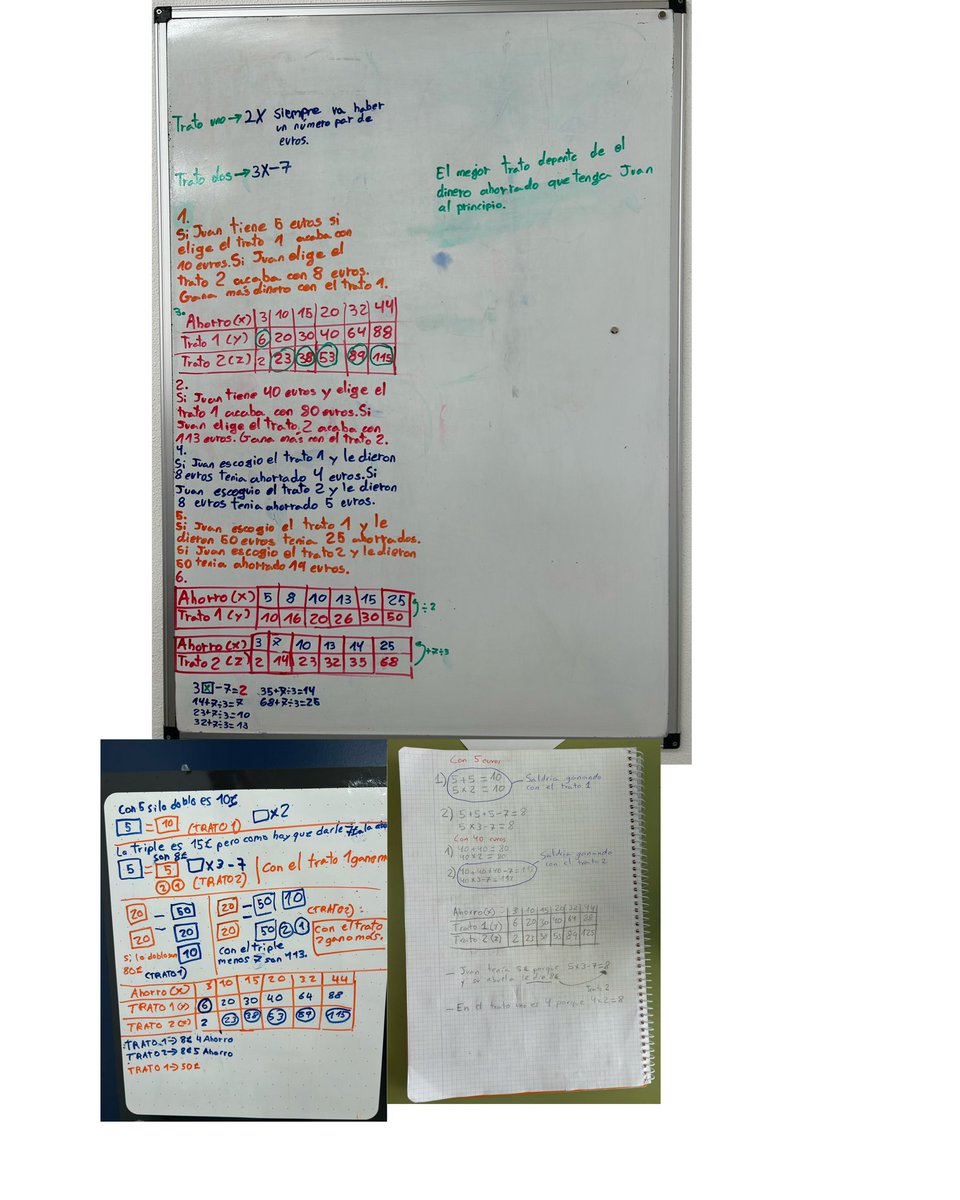 Trato uno → 2X siempre va haber
un número par de
euros.
Trato dos → 3X-7
El mejor trato depente de el
dinero ahorrado que tenga Juan
al principio.
1.
Si Juan tiene 5 euros si
elige el trato 1 acaba con
10 euros. Si Juan elige el
trato 2 acaba con 8 euros.
Gana más dinero con el trato 1.
3.
Ahorro(x) 3 10 15 20 32 44
Trato 1 (y) 6 20 30 40 64 88
Trato 2(z) 2 23 38 53 89 115
2.
Si Juan tiene 40 euros y elige el
trato 1 acaba con 80 euros. Si
Juan elige el trato 2 acaba con
113 euros. Gana más con el trato 2.
4.
Si Juan escogio el trato 1 y le dieron
8 euros tenia ahorrado 4 euros. Si
Juan escoguio el trato 2 y le dieron
8 euros tenia ahorrado 5 euros.
5.
Si Juan escogio el trato 1 y le
dieron 50 euros tenia 25 ahorrados.
Si Juan escogio el trato 2 y le dieron
50 tenia ahorrado 19 euros.
6.
Ahorro(x) 5 8 10 13 15 25
Trato 1(y) 10 16 20 26 30 50
÷2
Ahorro(x) 3 7 10 13 14 25
Trato 2 (z) 2 14 23 32 35 68
+7÷3
3 x -7=2 35+7÷3=14
14+7÷3=7 68+7÷3=25
23+7÷3=10
32+7÷3=13
Con 5 si lo doblo es 10€
5 = 10 (TRATO 1) □x2
Lo triple es 15€ pero como hay que darle 7€ a la
son 8€
5 = 5 □x3-7 Con el trato 1 gane m
2 1 (TRATO2)
20 - 50
20 - 20
si lo doblo son 10
80€ (TRATO1)
20 - 50 10
20 50 2 1
(TRATO2):
con el triple
menos 7 son 113.
con el trato
2 gano más.
Ahorro(x) 3 10 15 20 32 44
TRATO 1 6 20 30 40 64 88
TRATO 2(z) 2 23 38 53 89 115
TRATO 1→ 8€ 4 Ahorro
TRATO 2→ 8€ 5 Ahorro
TRATO 1→ 50€
Con 5 euros
1) 5+5=10 Saldria ganando
5x2=10 con el trato 1
2) 5+5+5-7=8
5x3-7=8
Con 40 euros
1) 40+40=80
40x2=80
Saldria ganando
con el trato 2
2) 40+40+40-7=
40x3-7=
Ahorro(x) 3 10 15 20 32 44
Trato 1(y) 6 20 30 40 64 88
Trato 2(z) 2 23 38 53 89
Juan tenía 5€ porque 5x3-7=8
y su abuela le dio 8€
Trato 2
- En el trato uno es 4 porque 4x2=8